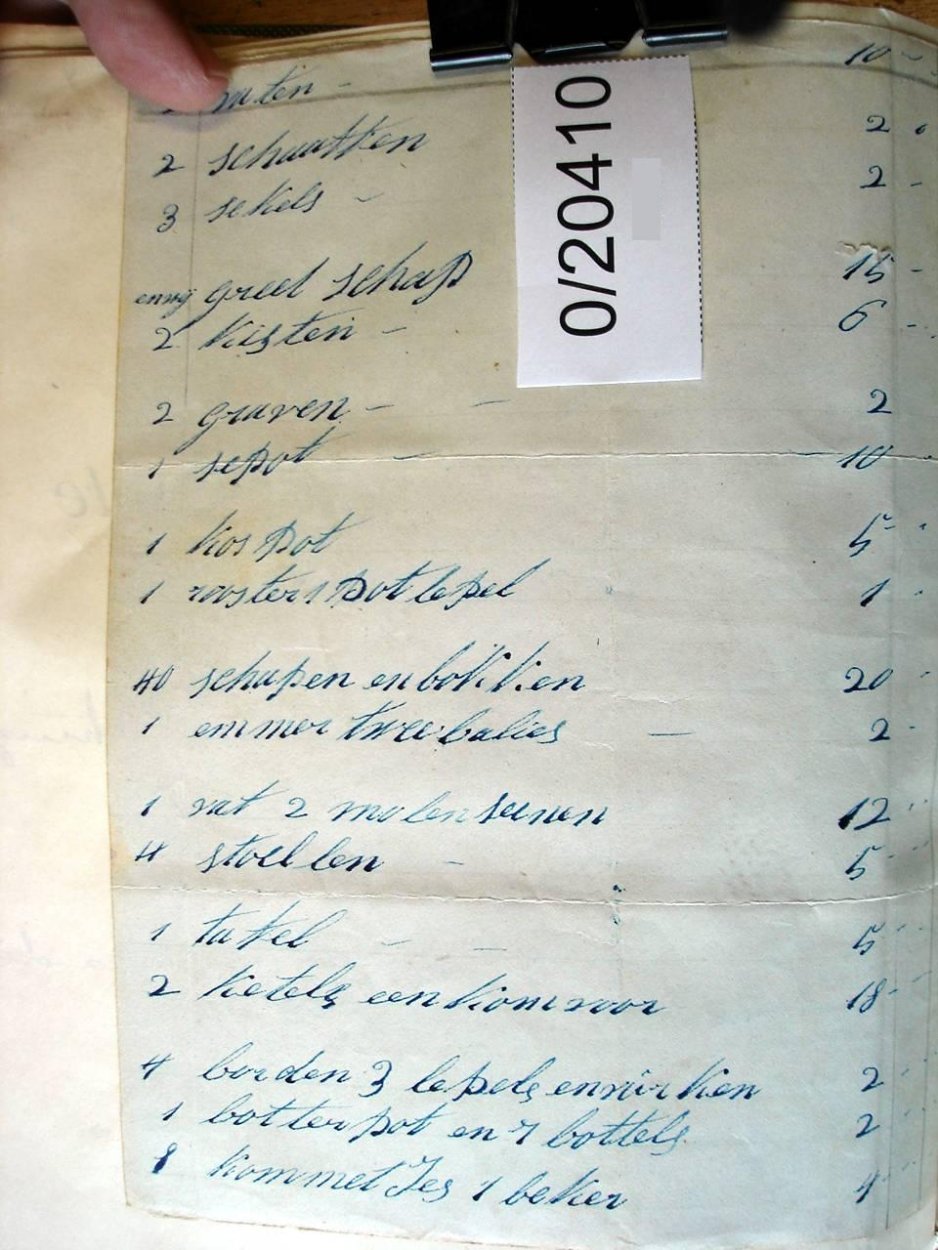 10 -
2 schaatten 2
3 sekels - 2 -
0/20410
enng greet schap 15 -
2 kisten - 6 -
2 graven - - 2
1 sepot - 10
1 kos pot 5
1 rooster 1 pot lepel 1
40 schapen en bokken 20
1 emmer twee balies - 2
1 vat 2 molen seinen 12
4 stoel len - 5
1 tafel - - 5
2 ketels een komvoor 18
4 borden 3 lepels en vorken 2
1 botter pot en 7 bottels 2
8 kommetjes 1 beker 4